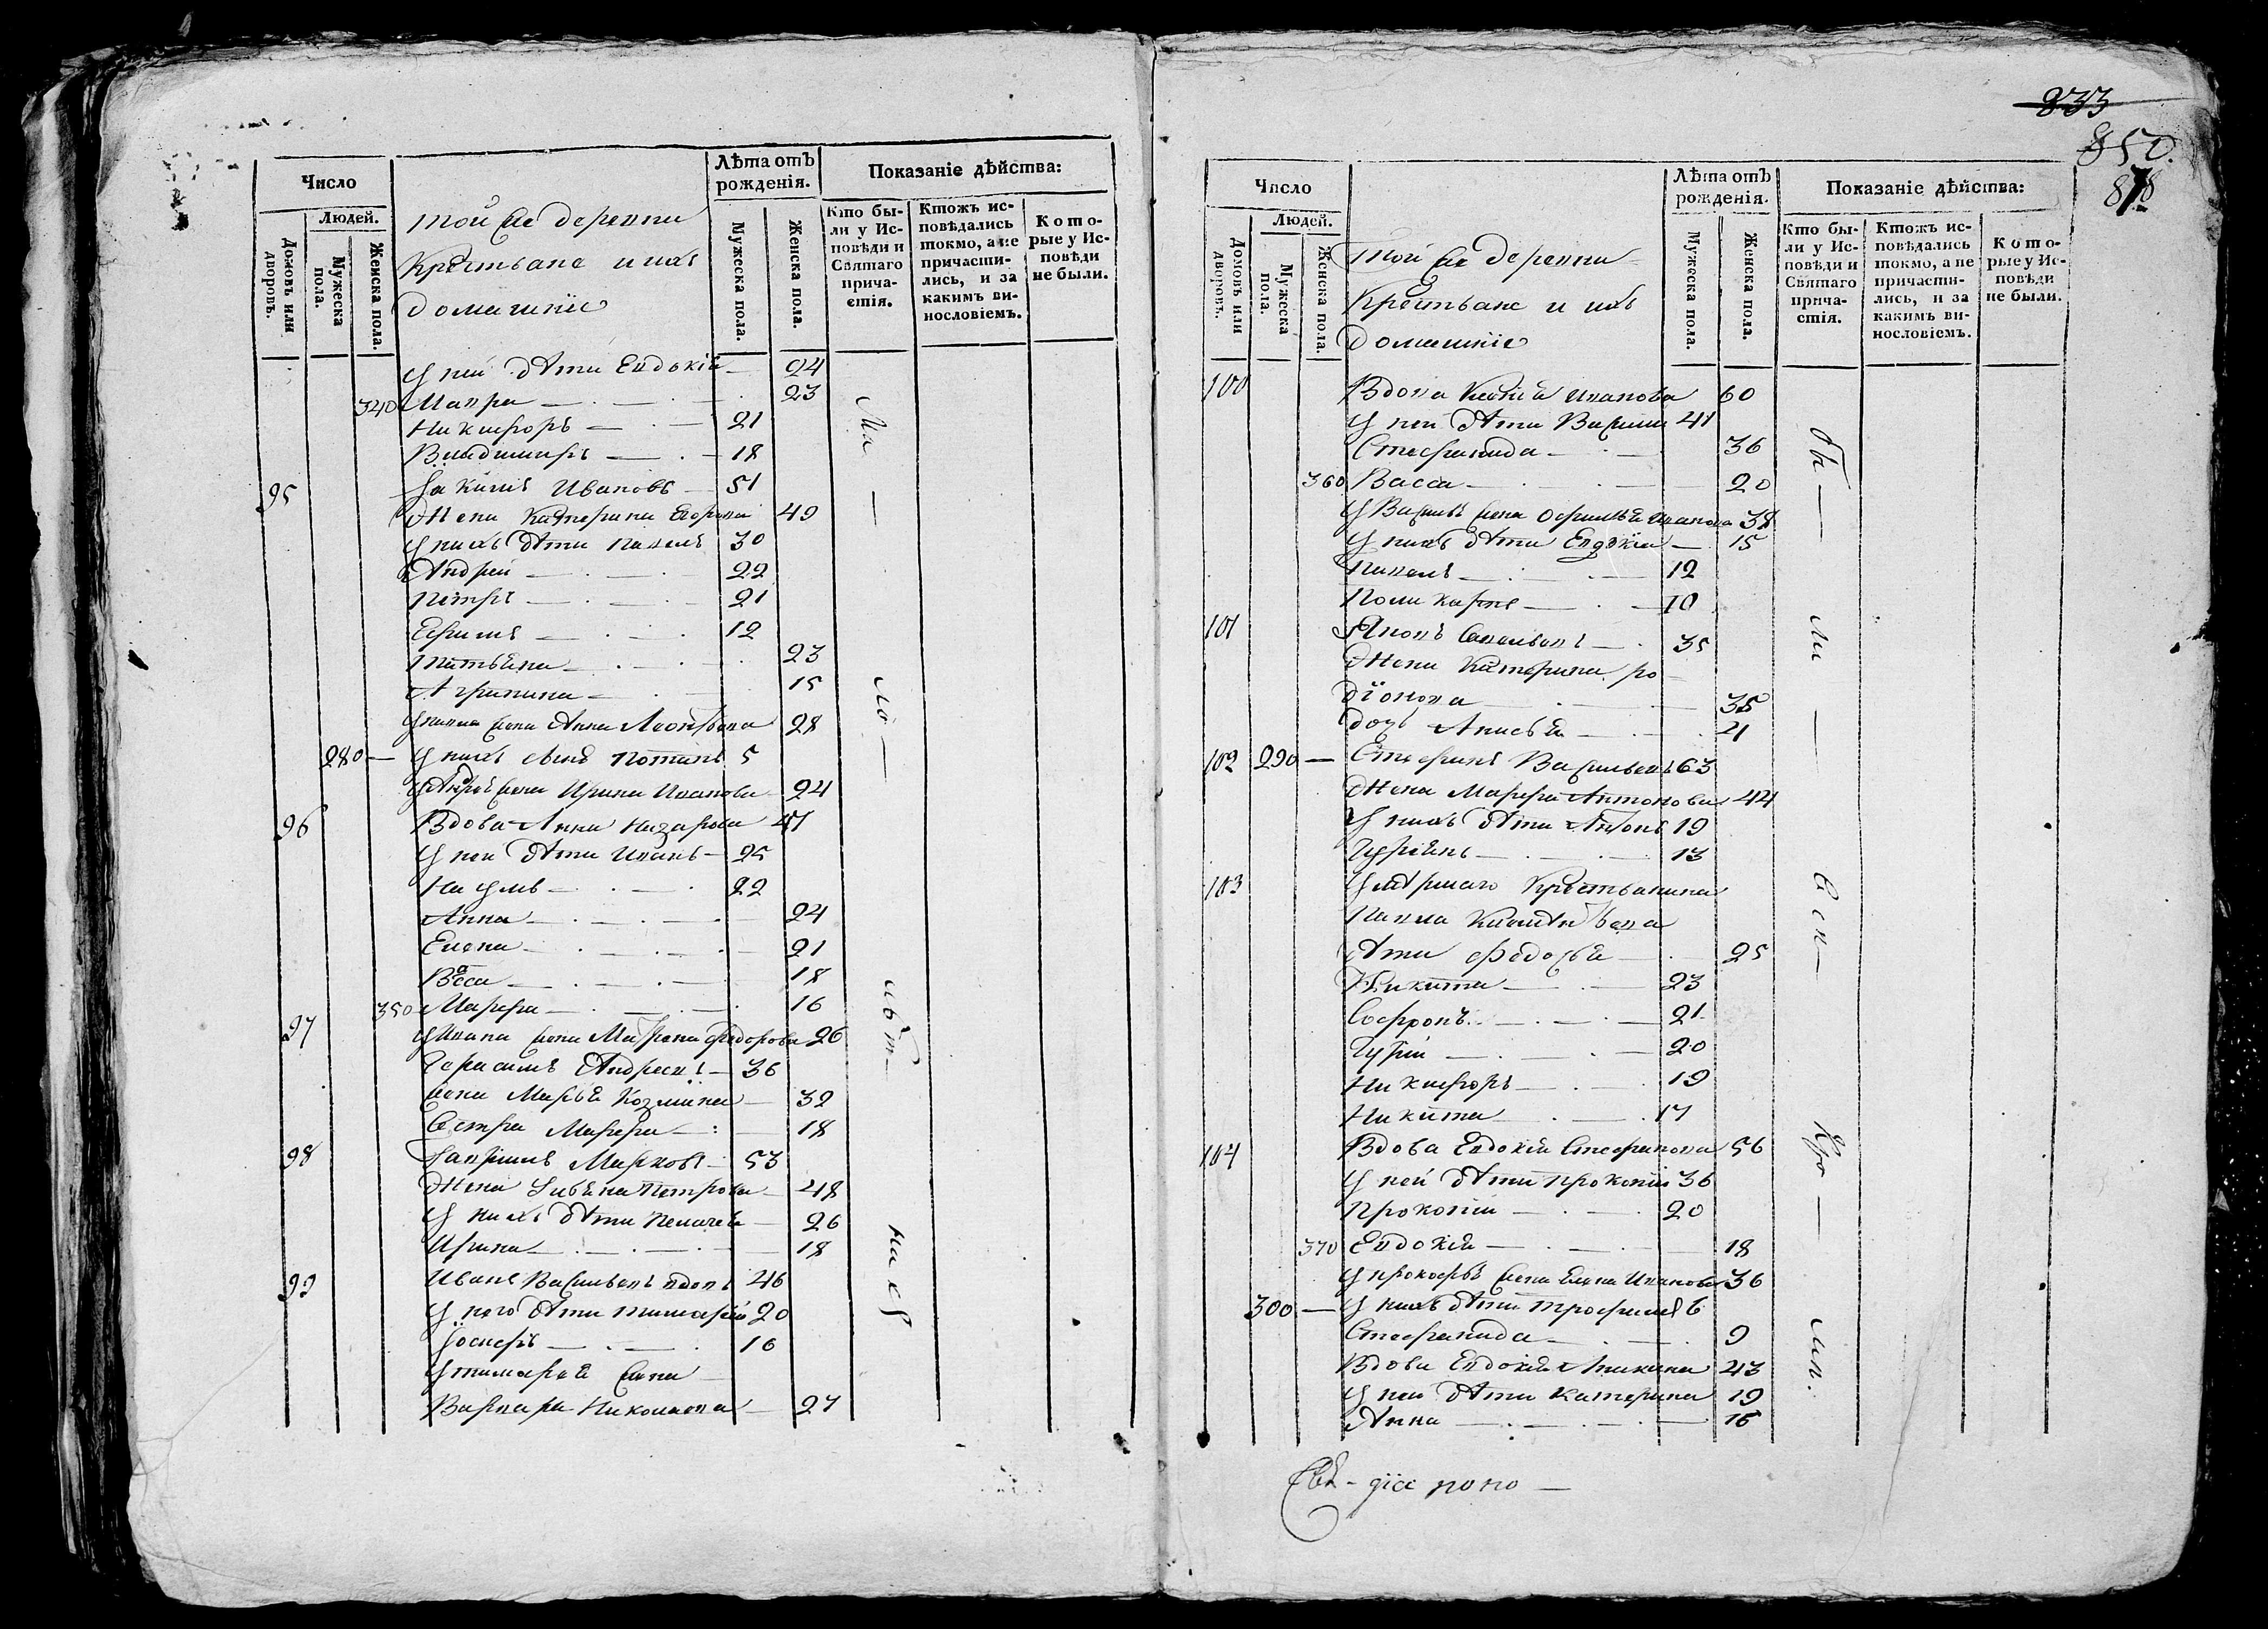 Число
Людей.
Домовъ или дворовъ.
Мужеска пола.
Женска пола.
Той же деревни
Крестьяне и ихъ
домашніе
Лѣта отъ рожденія.
Мужеска пола.
Женска пола.
Показаніе дѣйства:
Кто были у Исповѣди и Святаго причастія.
Ктожъ исповѣдались токмо, а не причастились, и за какимъ винословіемъ.
Которые у Исповѣди не были.
У ней дѣти Евдокія — 24
340 Мавра — 23
Никифоръ — 21
Владимиръ — 18
95 Іакимъ Ивановъ — 51
Жена Катерина Егорова 49
У нихъ дѣти Павелъ 30
Андрей — 22
Петръ — 21
Ефимъ — 12
Татьяна — 23
Агрипина — 15
жена Анна Леонтьева 28
280 — У нихъ сынъ Потапъ 5
У Андрея жена Ирина Иванова 24
96 Вдова Анна Назарова 47
У ней дѣти Иванъ — 25
Наумъ — 22
Анна — 24
Елена — 21
Васса — 18
350 Марфа — 16
97 У Ивана жена Матрона Федорова 26
Герасимъ Андреевъ — 36
жена Марья Козмина — 32
Сестра Марфа — 18
98 Гавріилъ Марковъ — 53
Жена Улияна Петрова — 48
У нихъ дѣти Пелагея — 26
Ирина — 18
99 Иванъ Васильевъ вдовъ 46
У него дѣти Тимофей 20
16
У Тимофея жена
Варвара Николаева — 27
233
850.
Число
Людей.
Домовъ или дворовъ.
Мужеска пола.
Женска пола.
Той же деревни
Крестьяне и ихъ
домашніе
Лѣта отъ рожденія.
Мужеска пола.
Женска пола.
Показаніе дѣйства:
Кто были у Исповѣди и Святаго причастія.
Ктожъ исповѣдались токмо, а не причастились, и за какимъ винословіемъ.
Которые у Исповѣди не были.
100 Вдова Иванова 60
У ней дѣти Василій 41
Стефанида — 36
360 Васса — 20
У Василья жена Ефимья Иванова 38
У нихъ дѣти Евдокія — 15
Павелъ — 12
Поликарпъ — 10
101 35
Жена Катерина Ро
діонова — 35
дочь Анисья — 4
102 290 — Стефанъ Васильевъ 63
Жена Марфа Антонова 44
У нихъ дѣти Антонъ 19
Гурьянъ — 13
103 Умершаго Крестьянина
Павла
дѣти Федосья — 25
Никита — 23
Софронъ — 21
Гурій — 20
Никифоръ — 19
Никита — 17
104 Вдова Евдокія Стефанова 56
У ней дѣти Прокопій 36
Прокопій — 20
370 Евдокія — 18
У Прокофья жена Елена Иванова 36
300 — У нихъ дѣти Трофимъ 6
Стефанида — 9
Вдова Евдокія Аникина 43
У ней дѣти Катерина 19
Анна — 16